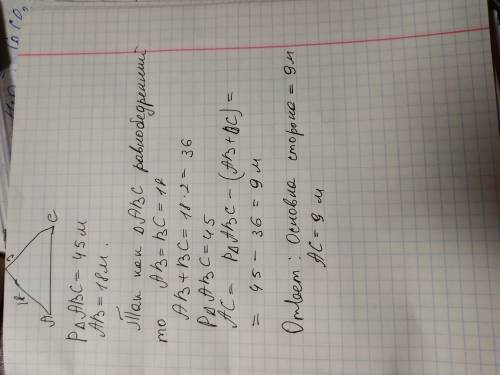 18
B
A
C
P△ABC = 45м
AB = 18м.
Так как △ABC равнобедренний
то AB = BC = 18
AB + BC = 18 · 2 = 36
P△ABC = 45
AC = P△ABC - (AB + BC) =
= 45 - 36 = 9 м
Ответ: Основна сторона = 9м
AC = 9 м